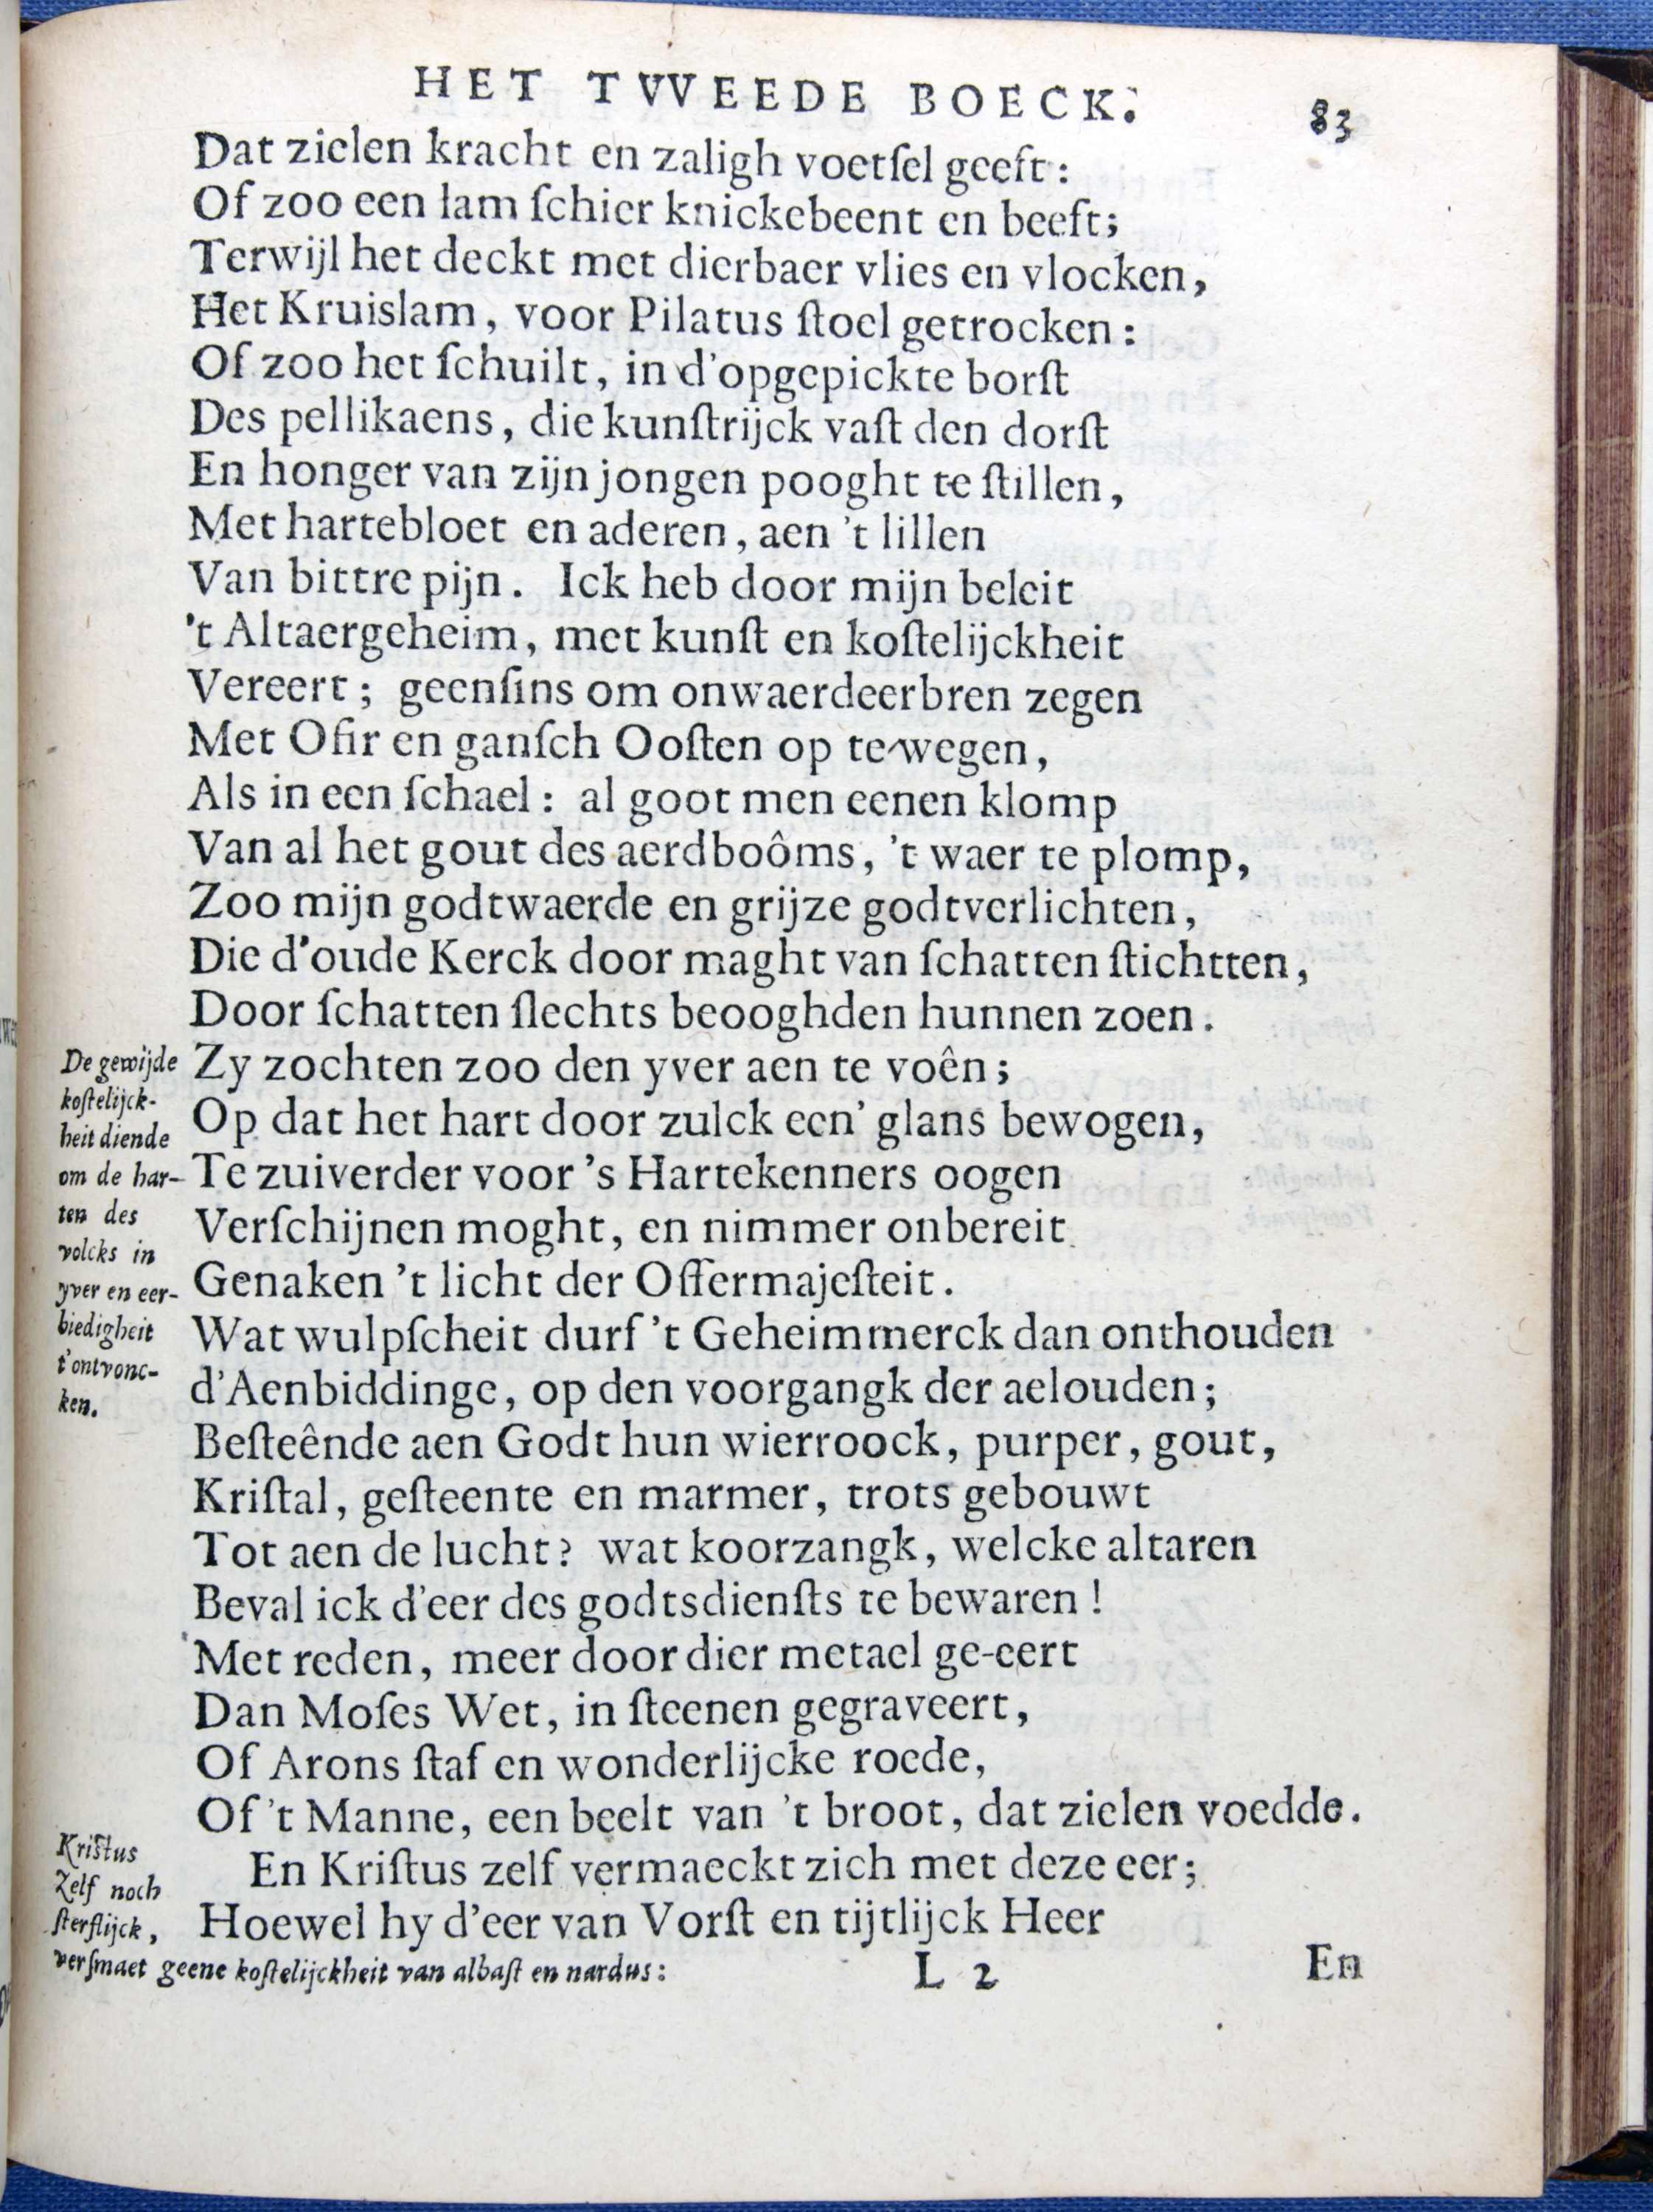 HET TVVEEDE BOECK. 83
Dat zielen kracht en zaligh voetſel geeft:
Of zoo een lam ſchier knickebeent en beeft;
Terwijl het deckt met dierbaer vlies en vlocken,
Het Kruislam, voor Pilatus ſtoel getrocken:
Of zoo het ſchuilt, in d'opgepickte borſt
Des pellikaens, die kunſtrijck vaſt den dorſt
En honger van zijn jongen pooght te ſtillen,
Met hartebloet en aderen, aen 't lillen
Van bittre pijn. Ick heb door mijn beleit
't Altaergeheim, met kunſt en koſtelijckheit
Vereert; geenſins om onwaerdeerbren zegen
Met Ofir en ganſch Ooſten op te wegen,
Als in een ſchael: al goot men eenen klomp
Van al het gout des aerdboôms, 't waer te plomp,
Zoo mijn godtwaerde en grijze godtverlichten,
Die d'oude Kerck door maght van ſchatten ſtichtten,
Door ſchatten ſlechts beooghden hunnen zoen.
Zy zochten zoo den yver aen te voên;
Op dat het hart door zulck een' glans bewogen,
Te zuiverder voor 's Hartekenners oogen
Verſchijnen moght, en nimmer onbereit
Genaken 't licht der Offermajeſteit.
Wat wulpſcheit durf 't Geheimmerck dan onthouden
d'Aenbiddinge, op den voorgangk der aelouden;
Beſteênde aen Godt hun wierroock, purper, gout,
Kriſtal, geſteente en marmer, trots gebouwt
Tot aen de lucht? wat koorzangk, welcke altaren
Beval ick d'eer des godtsdienſts te bewaren!
Met reden, meer door dier metael ge-eert
Dan Moſes Wet, in ſteenen gegraveert,
Of Arons ſtaf en wonderlijcke roede,
Of 't Manne, een beelt van 't broot, dat zielen voedde.
En Kriſtus zelf vermaeckt zich met deze eer;
Hoewel hy d'eer van Vorſt en tijtlijck Heer
De gewijde
koſtelijck-
heit diende
om de har-
ten des
volcks in
yver en eer-
biedigheit
t'ontvonc-
ken.
Kriſtus
Zelf noch
ſterflijck,
verſmaet geene koſtelijckheit van albaſt en nardus:
L 2
En